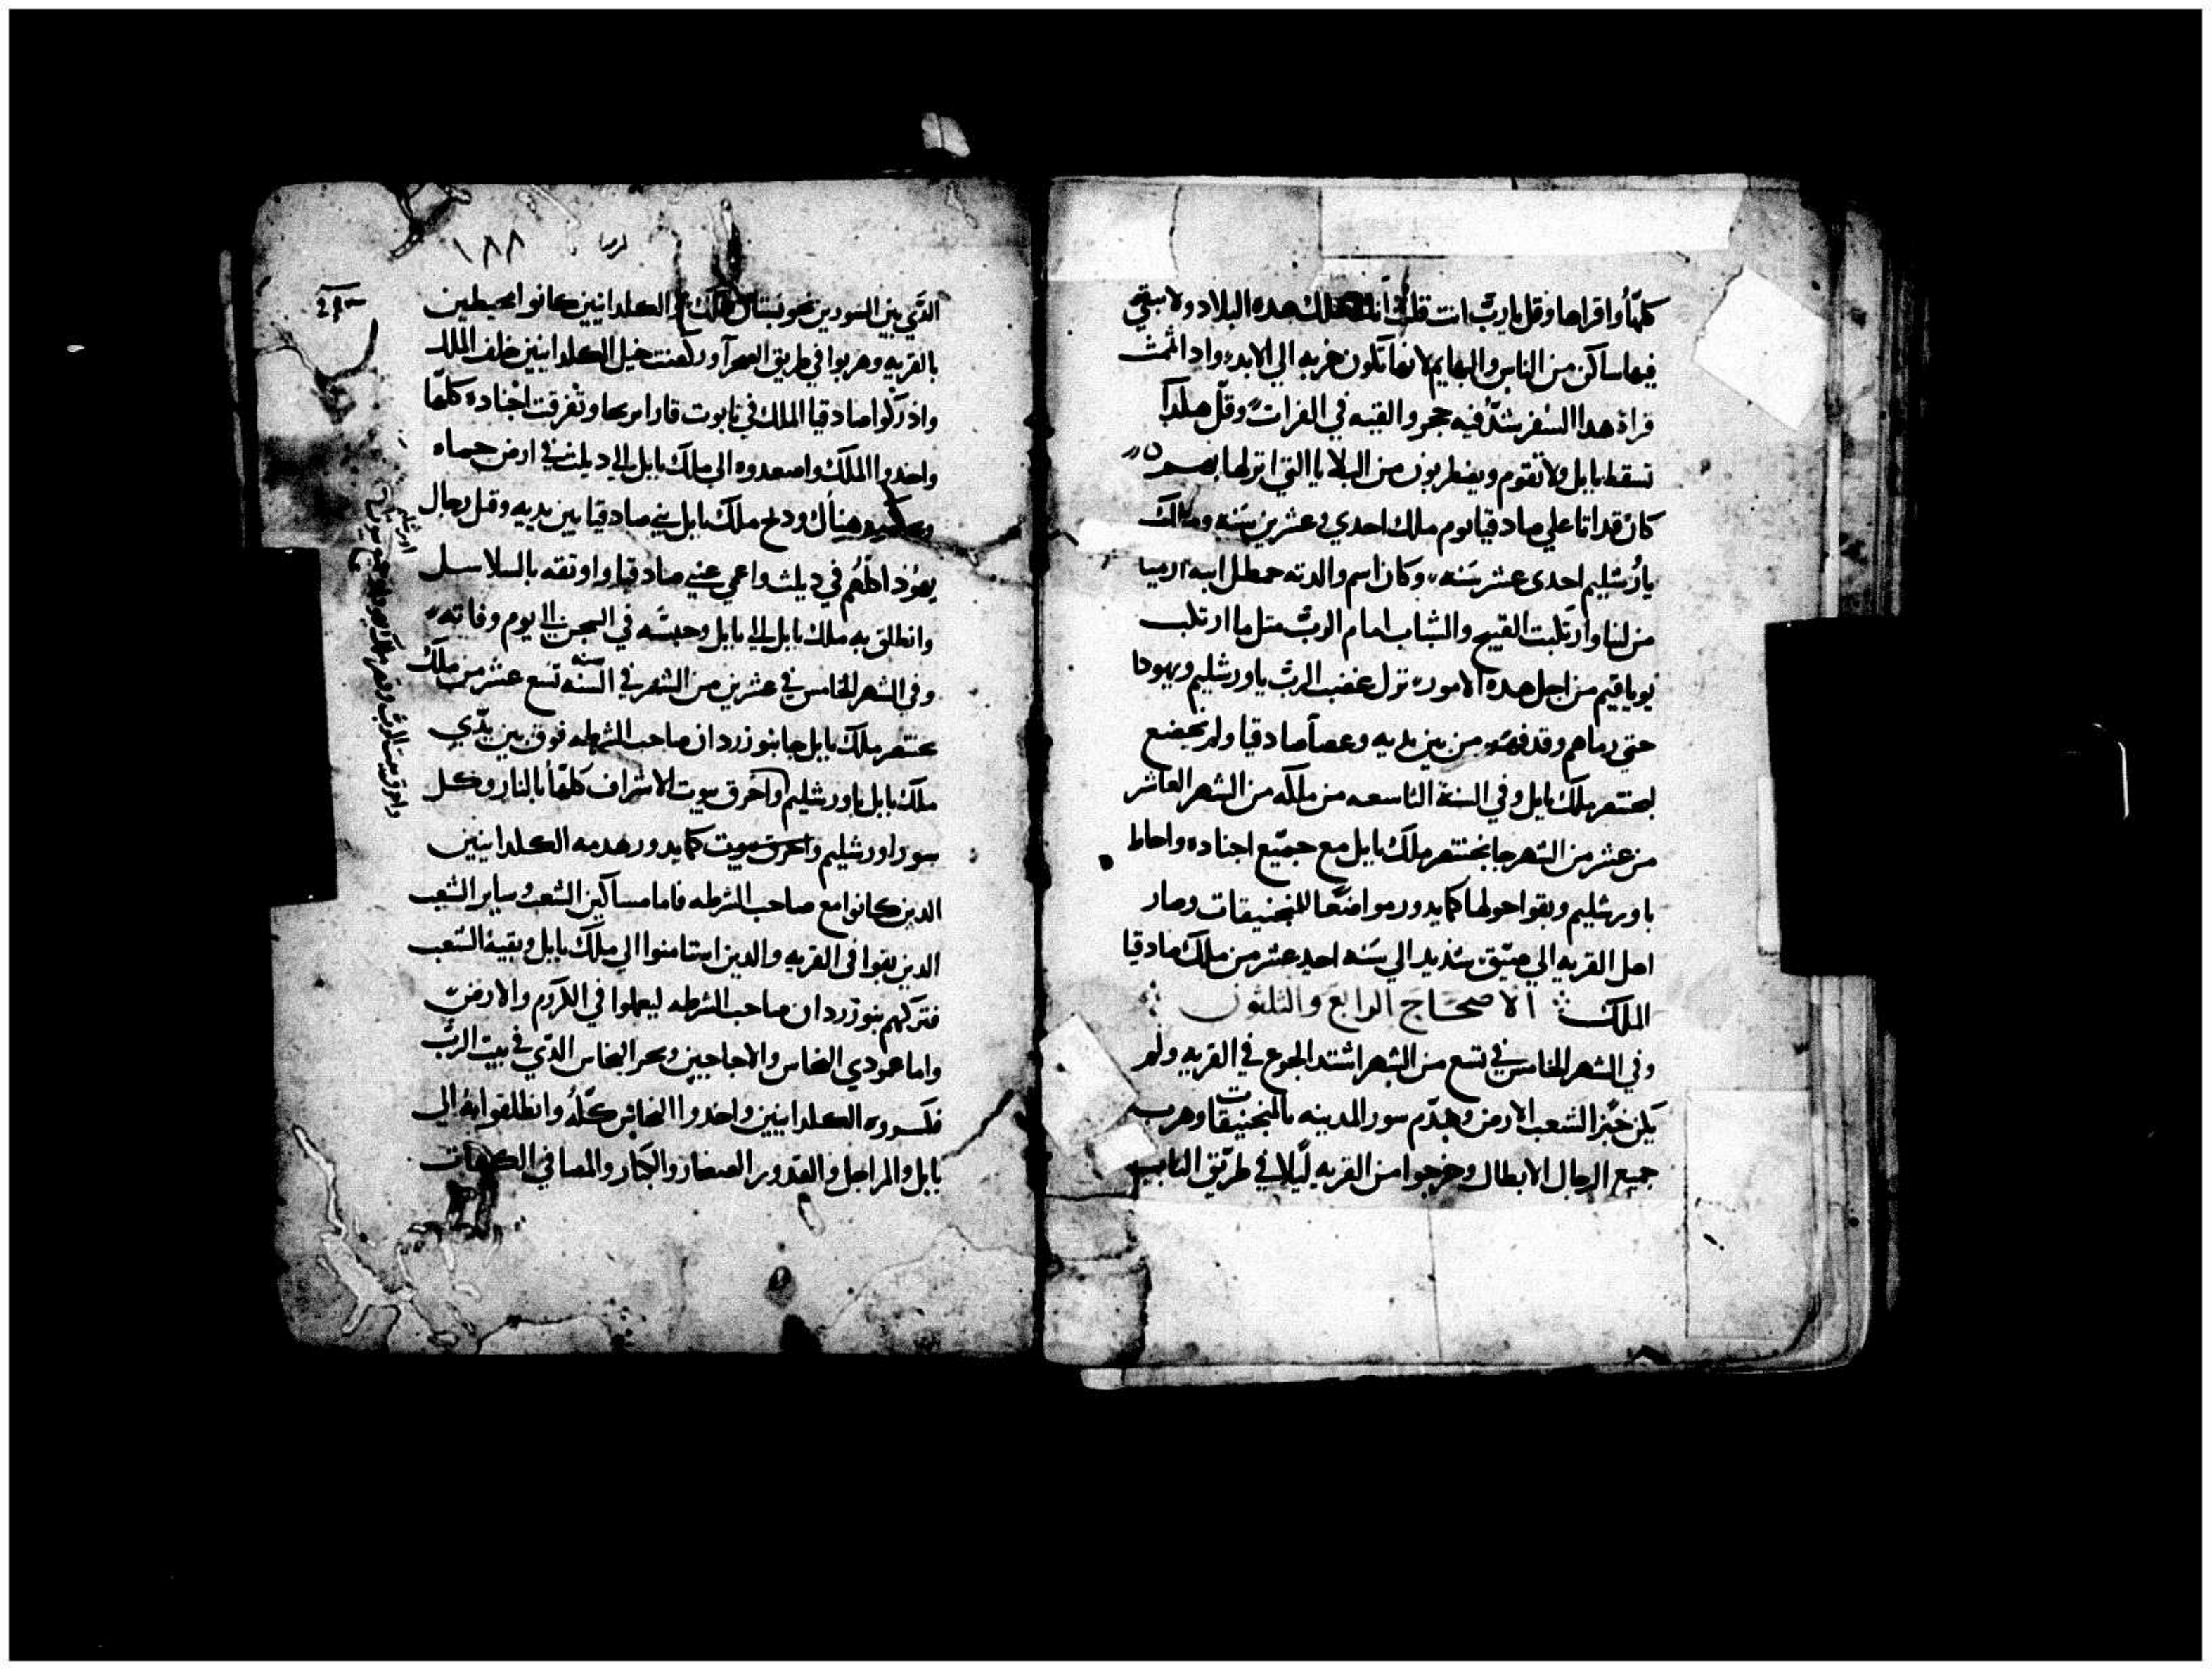 كلها واقراها وقل يارب انت قلت انك تهلك هده البلاد ولا يبقي
فيها ساكن من الناس والبهايم لانها تكون خربه الي الابد وادا اتممت
قراة هدا السفر شد فيه حجر والقيه في الفرات وقل هكدا
تسقط بابل ولا تقوم ويضطربون من البلايا التي انزلها بهم
كان قد اتا علي صادقيا يوم ملك احدي وعشرين سنه وملك
باورشليم احدي عشر سنه وكان اسم والدته حمطل ابنه ارميا
من لبنا وارتكبت القبيح والشاب امام الرب متل ما ارتكب
يوياقيم من اجل هده الامور نزل غضب الرب باورشليم ويهودا
حتي رماهم وقدفهم من بين يديه وعصا صادقيا ولم يخضع
لبختنصر ملك بابل وفي السنة التاسعه من ملكه من الشهر العاشر
من عشر من الشهر جا بختنصر ملك بابل مع جميع اجناده واحاط
باورشليم وبقوا حولها كما يدور مواضعا للمنجنيقات وصار
اهل القريه الي ضيق شديد الي سنه احد عشر من ملك صادقيا
الملك الاصحاح الرابع والتلتون
وفي الشهر الخامس في تسع من الشهر اشتد الجوع في القريه ولم
يكن خبز الشعب الارض وهدم سور المدينه بالمنجنيقات وهرب
جميع الرجال الابطال وخرجوا من القريه ليلا في طريق الباب
١٨٨ ارميا
الدي بين السورين نحو بستان الملك الكلدانيين كانوا محيطين
بالقريه وهربوا في طريق الصحرا وركضت خيل الكلدانيين خلف الملك
وادركوا صادقيا الملك في تابوت قارا مريحا وتفرقت اجناده كلها
واخدوا الملك واصعدوه الي ملك بابل الي ديلت في ارض حماه
هناك ودبح ملك بابل بني صادقيا بين يديه وقتل رجال
يهودا كلهم في ديلت واعمي عيني صادقيا واوتقه بالسلاسل
وانطلق به ملك بابل الي بابل وحبسه في السجن الي يوم وفاته
وفي الشهر الخامس في عشرين من الشهر في السنه سنه تسع عشر من ملك
ختنصر ملك بابل جا بنوزردان صاحب الشرطه فوق بين يدي
ملك بابل باورشليم واحرق بيوت الاشراف كلها بالنار وكل
سور اورشليم واحرق بيوت كما يدور هدمه الكلدانيين
الدين كانوا مع صاحب الشرطه فاما مساكين الشعب وساير الشعب
الدين بقوا في القريه والدين استامنوا الي ملك بابل وبقية الشعب
فتركهم بنوزردان صاحب الشرطه ليعملوا في الكروم والارض
واما عمودي النحاس والاجاجين وبحر النحاس الدي في بيت الرب
فكسروه الكلدانيين واخدوا النحاس كله وانطلقوا به الي
بابل والمراجل والقدور الصغار والكبار والمصافي
واحرق بيت الرب وقصر ملك